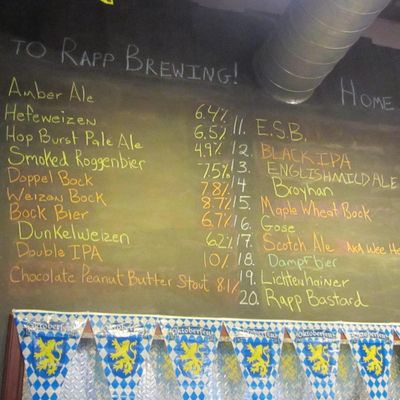 TO RAPP BREWING!
HOME
Amber Ale 6.4%
Hefeweizen 6.5%
Hop Burst Pale Ale 4.9%
Smoked Roggenbier 7.5%
Doppel Bock 7.8%
Weizen Bock 8.7%
Bock Bier 6.7%
Dunkelweizen 6.2%
Double IPA 10%
Chocolate Peanut Butter Stout 8.1%
11. E.S.B.
12. BLACK IPA
13. ENGLISH MILD ALE
14. Broyhan
15. Maple Wheat Bock
16. Gose
17. Scotch Ale AKA Wee He
18. Dampfbier
19. Lichtenhainer
20. Rapp Bastard
Oktoberfest Oktoberfest Oktoberfest Oktoberfest Oktoberfest Oktoberfest